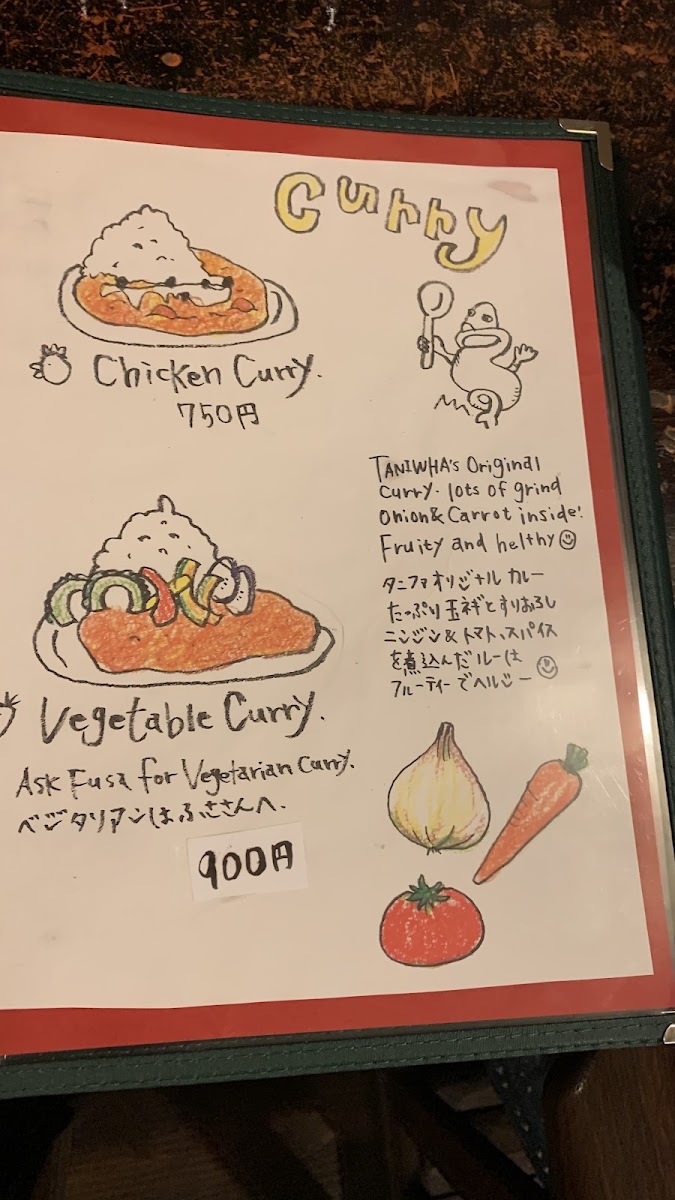 Curry
Chicken Curry.
750円
TANIWHA's Original
Curry. lots of grind
onion & Carrot inside!
Fruity and helthy
タニファオリジナル カレー
たっぷり玉ネギとすりおろし
ニンジン&トマト、スパイス
を煮込んだルーは
フルーティーでヘルシー
Vegetable Curry.
Ask Fusa for Vegetarian Curry.
ベジタリアンはふささんへ.
900円